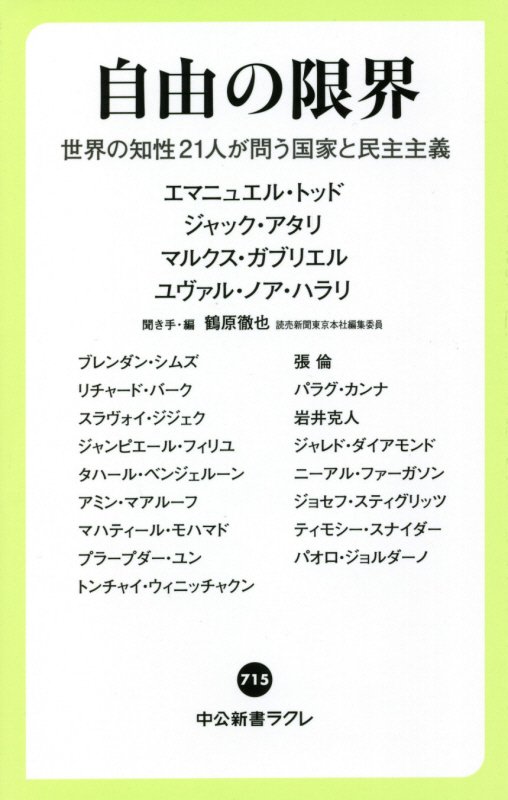 自由の限界
世界の知性21人が問う国家と民主主義
エマニュエル・トッド
ジャック・アタリ
マルクス・ガブリエル
ユヴァル・ノア・ハラリ
聞き手・編 鶴原徹也 読売新聞東京本社編集委員
ブレンダン・シムズ
リチャード・バーク
スラヴォイ・ジジェク
ジャンピエール・フィリユ
タハール・ベンジェルーン
アミン・マアルーフ
マハティール・モハマド
プラープダー・ユン
トンチャイ・ウィニッチャクン
張 倫
パラグ・カンナ
岩井克人
ジャレド・ダイアモンド
ニーアル・ファーガソン
ジョセフ・スティグリッツ
ティモシー・スナイダー
パオロ・ジョルダーノ
715
中公新書ラクレ